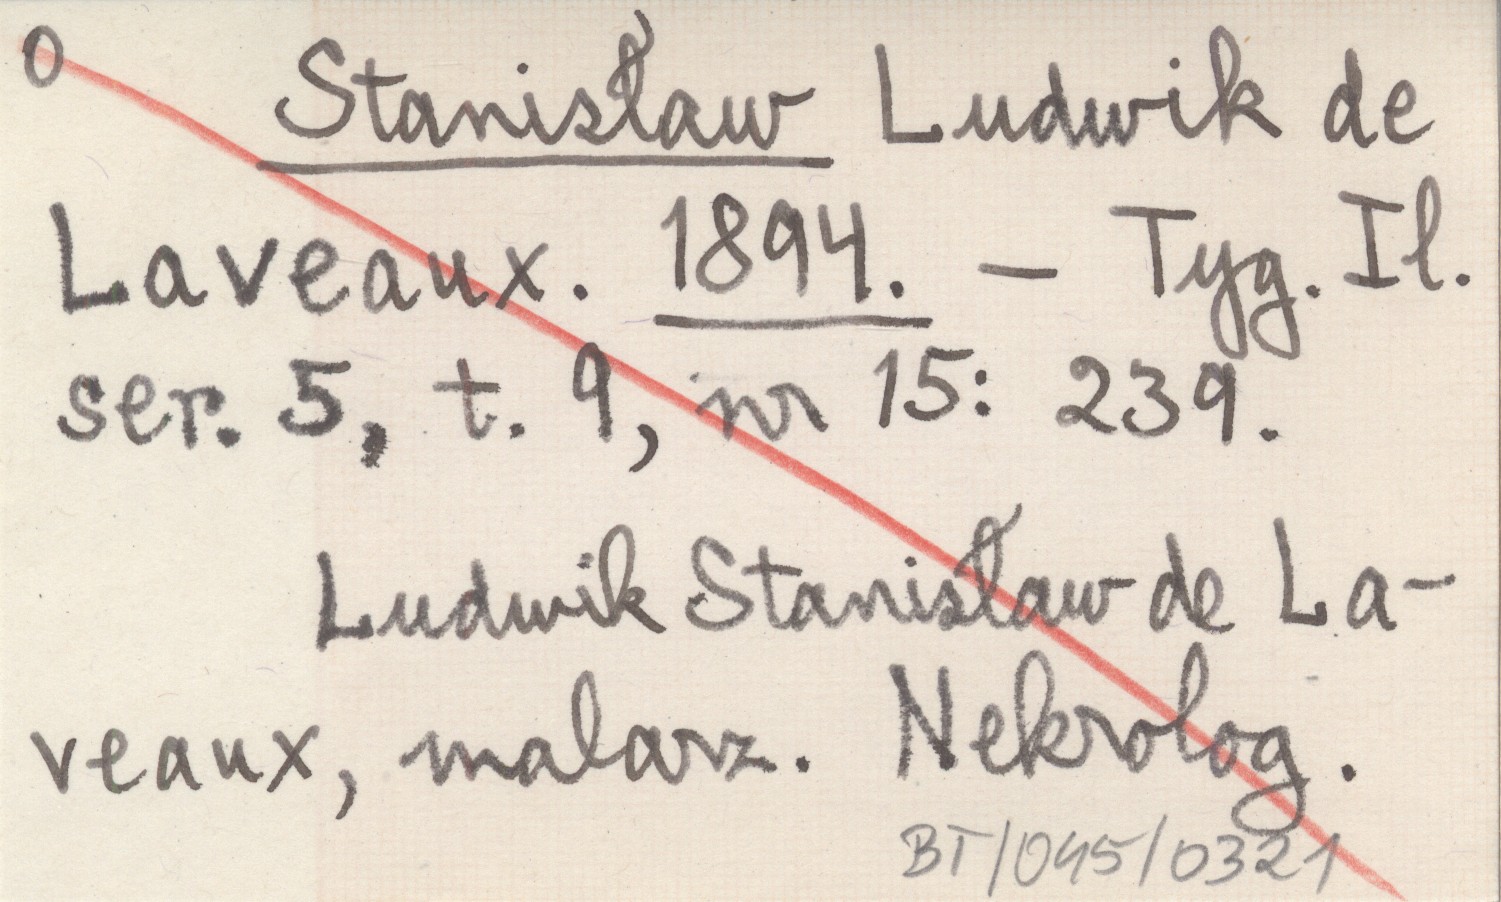 0 Stanisław Ludwik de
Laveaux. 1894. – Tyg. Il.
ser. 5, t. 9, nr 15: 239.
Ludwik Stanisław de La-
veaux, malarz. Nekrolog.
BT/045/0321